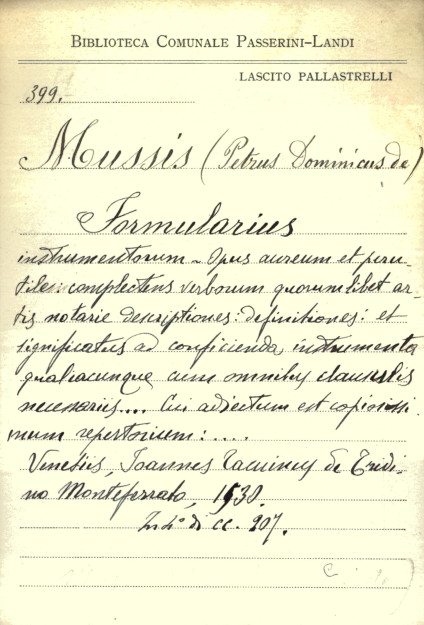 BIBLIOTECA COMUNALE PASSERINI-LANDI
LASCITO PALLASTRELLI
399.
Mussis (Petrus Dominicus de)
Formularius
instrumentorum - Opus aureum et peru-
tile: complectens verborum quorumlibet ar-
tis notarie descriptiones: definitiones: et
significatus ad conficienda instrumenta
qualiacunque cum omnibus clausulis
necessariis.... Cui adiectum est copiosissi
mum repertorium: ....
Venetiis, Joannes Tacuinus de Tridi-
no Monteferrato, 1530.
In 4° di cc. 207.
C